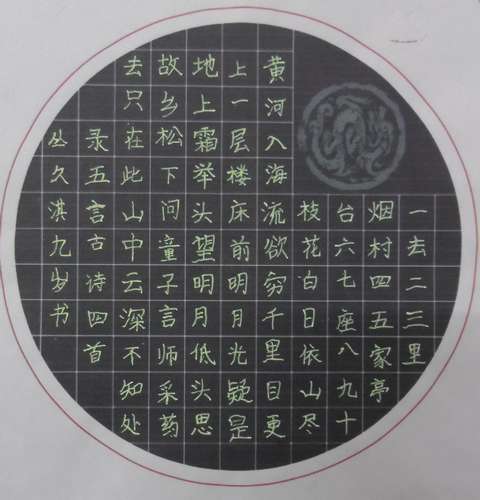 一去二三里
烟村四五家亭
台六七座八九十
枝花白日依山尽
黄河入海流欲穷千里目更
上一层楼床前明月光疑是
地上霜举头望明月低头思
故乡松下问童子言师采药
去只在此山中云深不知处
录五言古诗四首
丛久淇九岁书